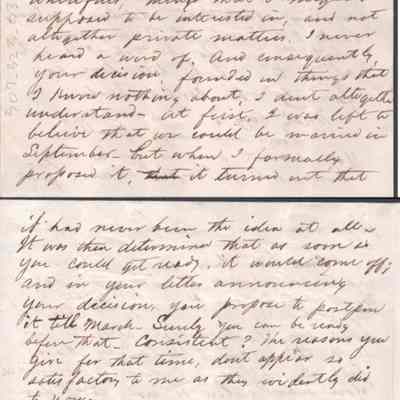 supposed to be interested in, and not
altogether private matters. I never
heard a word of, And consequently,
your decision, founded in things that
I know nothing about, I dont altogether
understand - At first, I was left to
believe that we could be married in
September - but when I formally
proposed it, that it turned out that
it had never been the idea at all -
It was then determined that as soon as
you could get ready, it would come off;
and in your letter announcing
your decision, you propose to postpone
it till March. Surely you can be ready
before that - Consistent? The reasons you
give for that time, dont appear so
satisfactory to me as they evidently did
to you